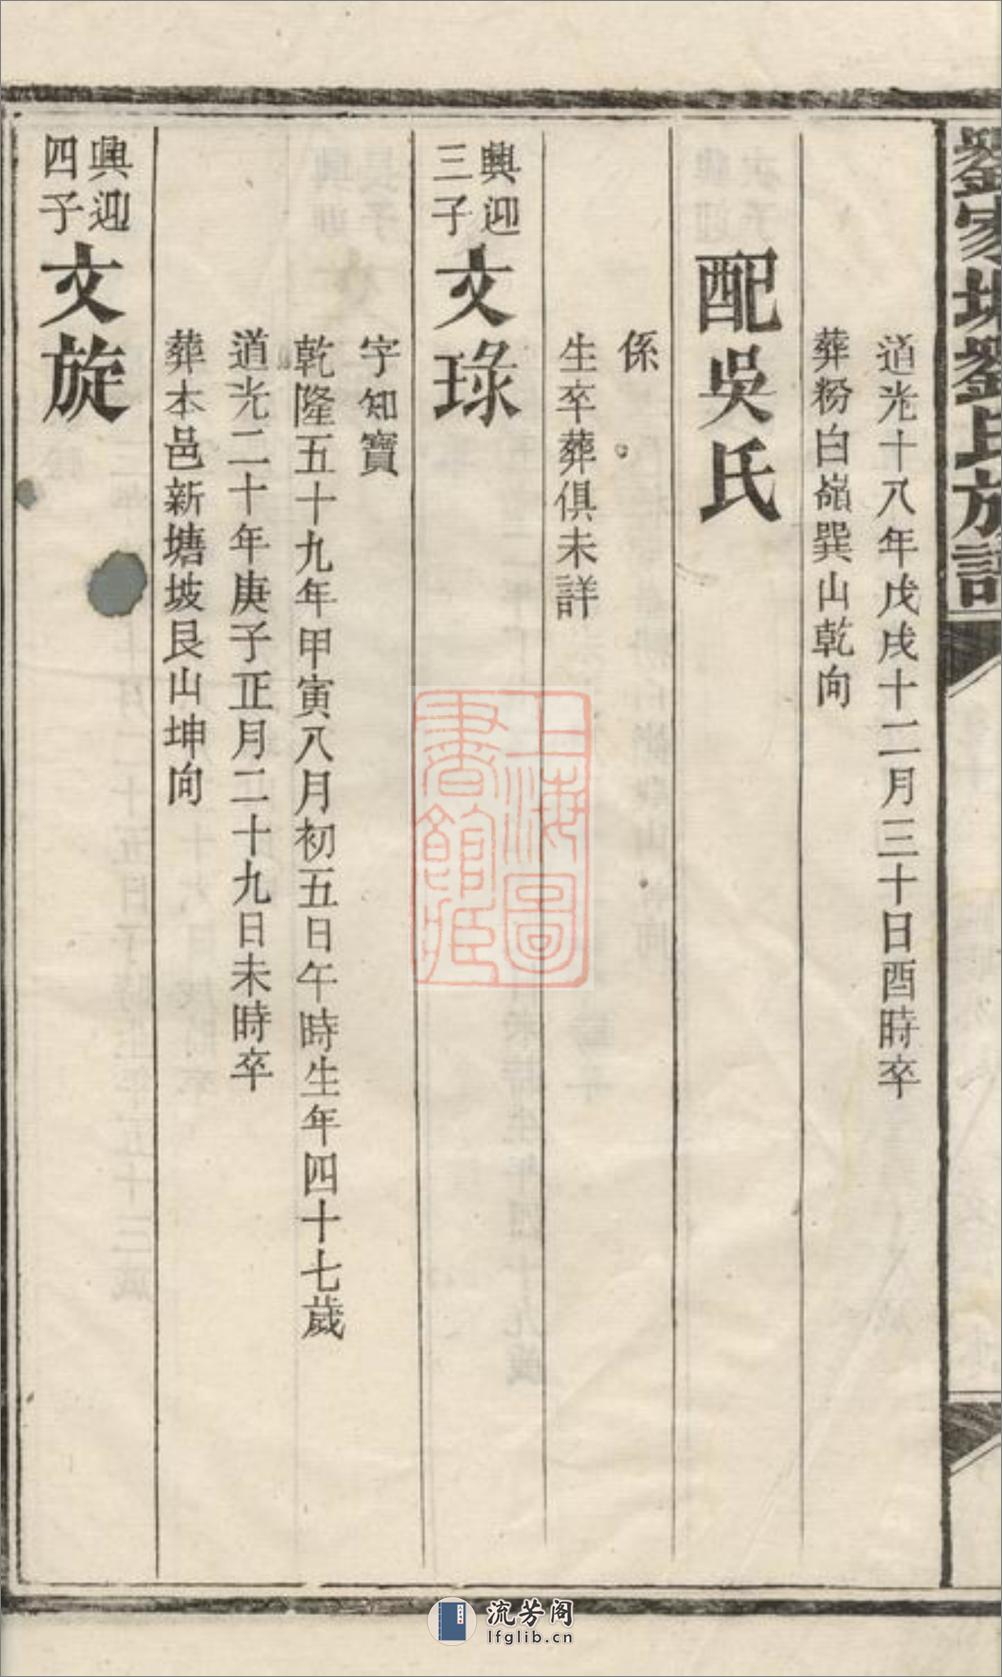 劉家塘劉氏族譜
道光十八年戊戌十二月三十日酉時卒
葬粉白嶺巽山乾向
配吳氏
係
生卒葬俱未詳
興迎
三子
文琭
字知寶
乾隆五十九年甲寅八月初五日午時生年四十七歲
道光二十年庚子正月二十九日未時卒
葬本邑新塘坡艮山坤向
興迎
四子
文旋
上海圖
書館藏
流芳阁
lfglib.cn